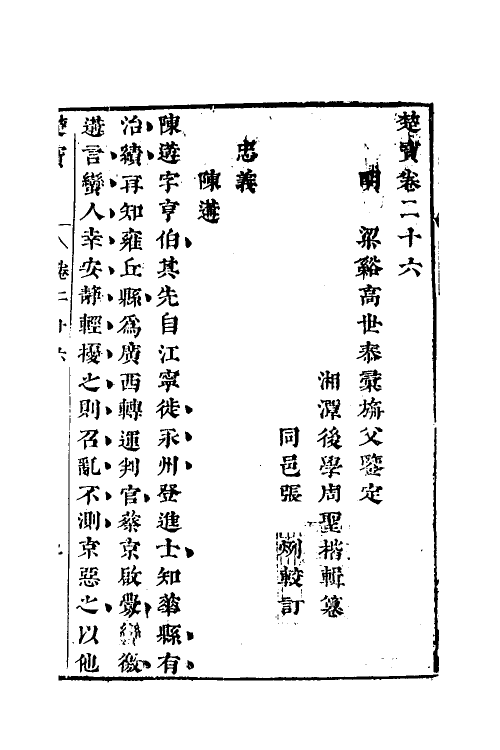 楚寶卷二十六
明 梁谿高世泰彙旃父鑒定
湘潭後學周聖楷輯纂
同邑張 較訂
忠義
陳遘
陳遘字亨伯其先自江寧徙永州登進士知莘縣有
治績再知雍丘縣爲廣西轉運判官蔡京啟釁徼
遘言蠻人幸安靜輕擾之則召亂不測京惡之以他
楚寶 卷二十六